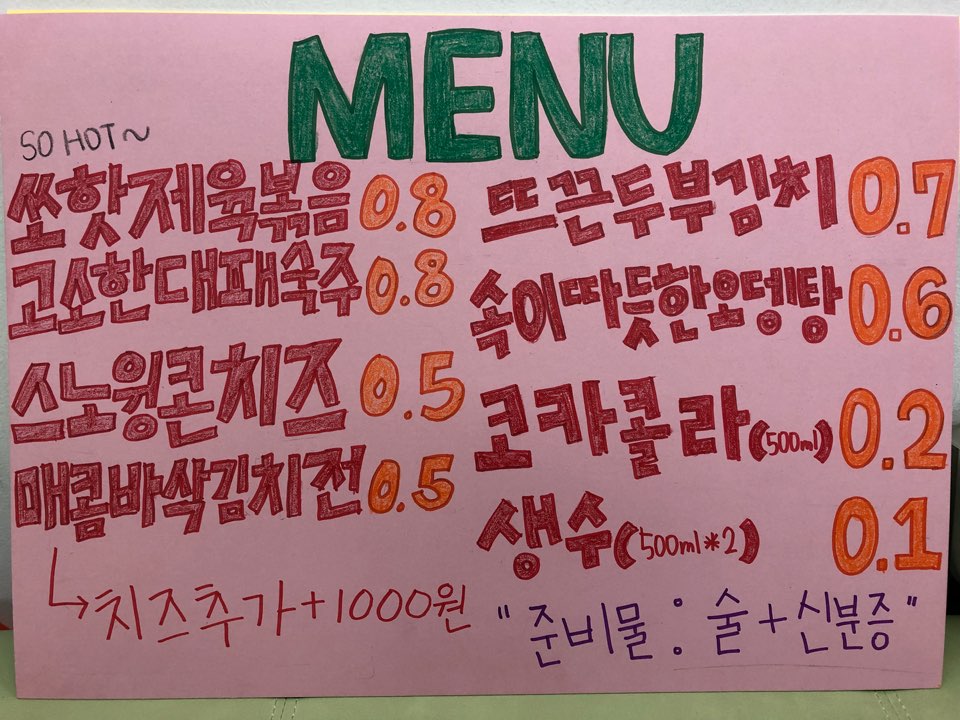 MENU
SO HOT~
쏘핫제육볶음 0.8
고소한대패숙주 0.8
스노윙콘치즈 0.5
매콤바삭김치전 0.5
↳치즈추가+1000원
뜨끈두부김치 0.7
속이따듯한오뎅탕 0.6
코카콜라(500ml) 0.2
생수(500ml*2) 0.1
"준비물 : 술+신분증"